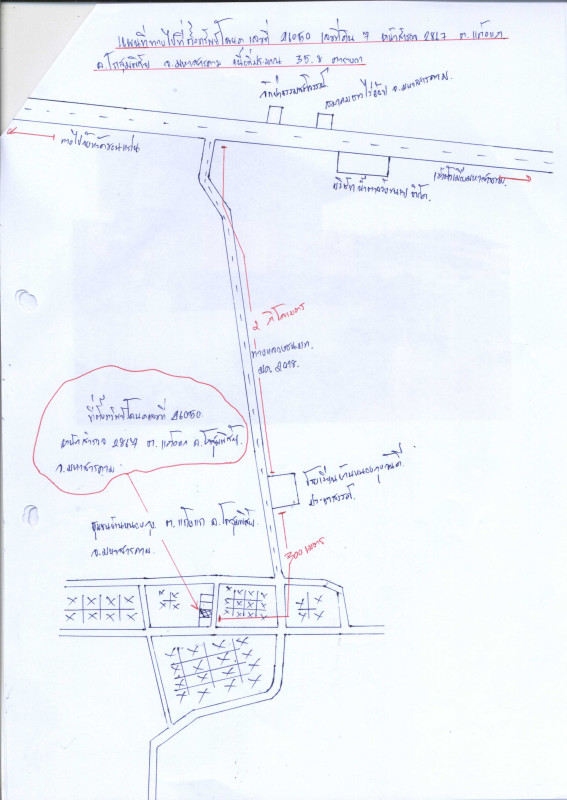 แผนที่ทางไปที่ตั้งทรัพย์โฉนด เลขที่ 26050 เลขที่ดิน 7 หน้าสำรวจ 2867 ต.แก้งแก
อ.โกสุมพิสัย จ.มหาสารคาม เนื้อที่ประมาณ 35.8 ตารางวา
ทางไปจังหวัดขอนแก่น
จ.มหาสารคาม.
บริษัท น้ำตาล จำกัด.
2 กิโลเมตร
ทางหลวงชนบท.
มค. 2018.
ที่ตั้งทรัพย์โฉนดเลขที่ 26050
หน้าสำรวจ 2867 ต. แก้งแก อ.โกสุมพิสัย
จ.มหาสารคาม
โรงเรียนบ้านหนองกุงวันดี
ประชาสรรค์.
ชุมชนบ้านหนองกุง ต. แก้งแก อ.โกสุมพิสัย
จ.มหาสารคาม.
300 เมตร